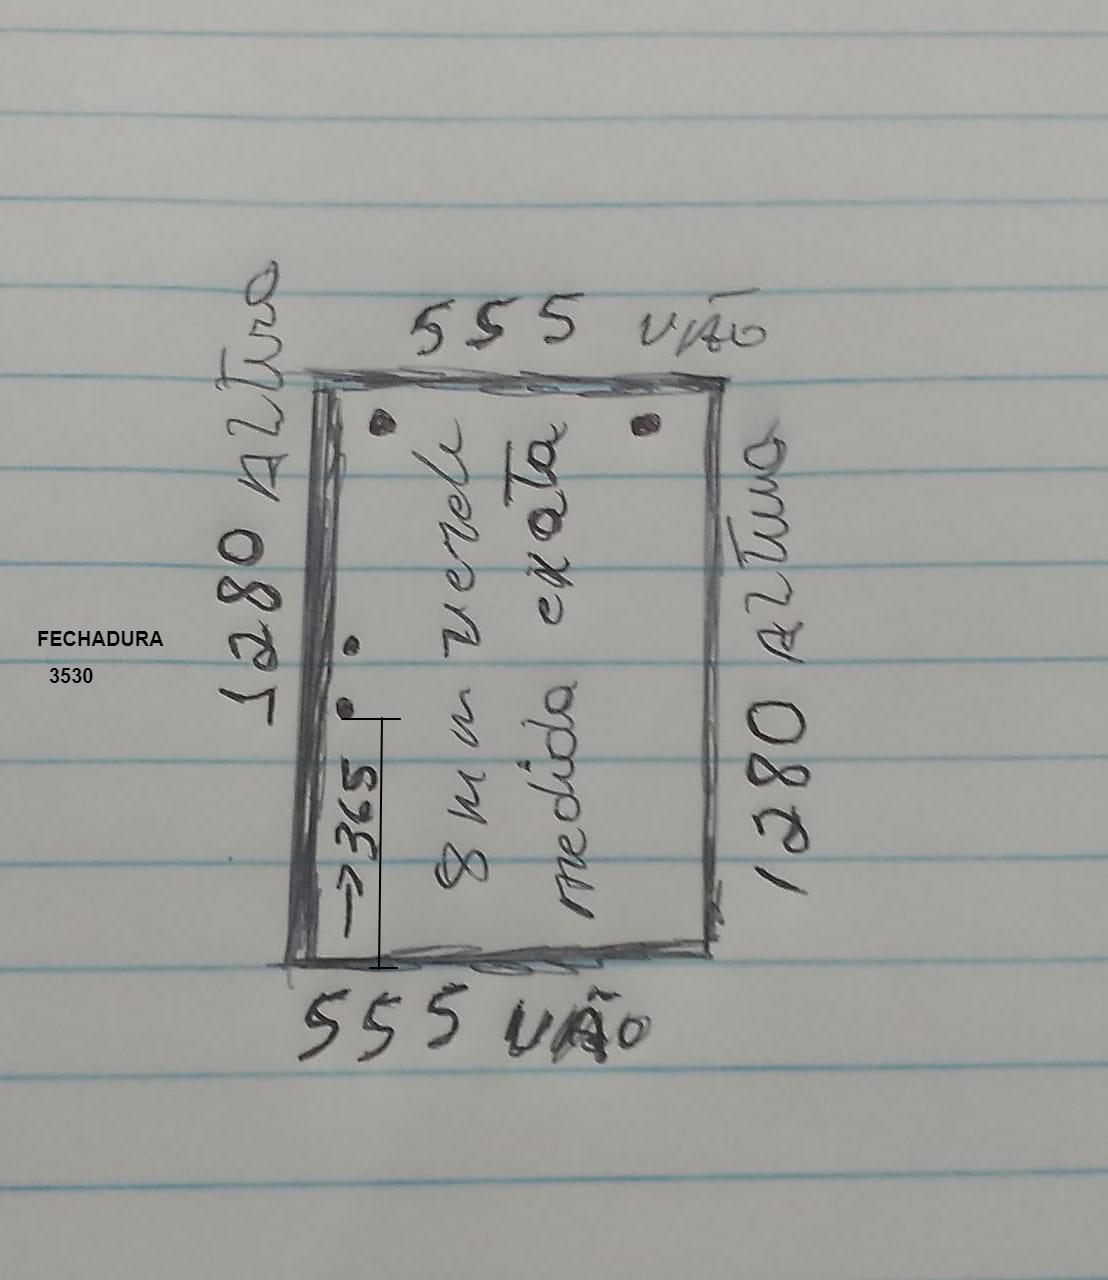 555 VÃO
1280 ALTURA
8 mm verde
medida exata
1280 ALTURA
FECHADURA
3530
→365
555 VÃO